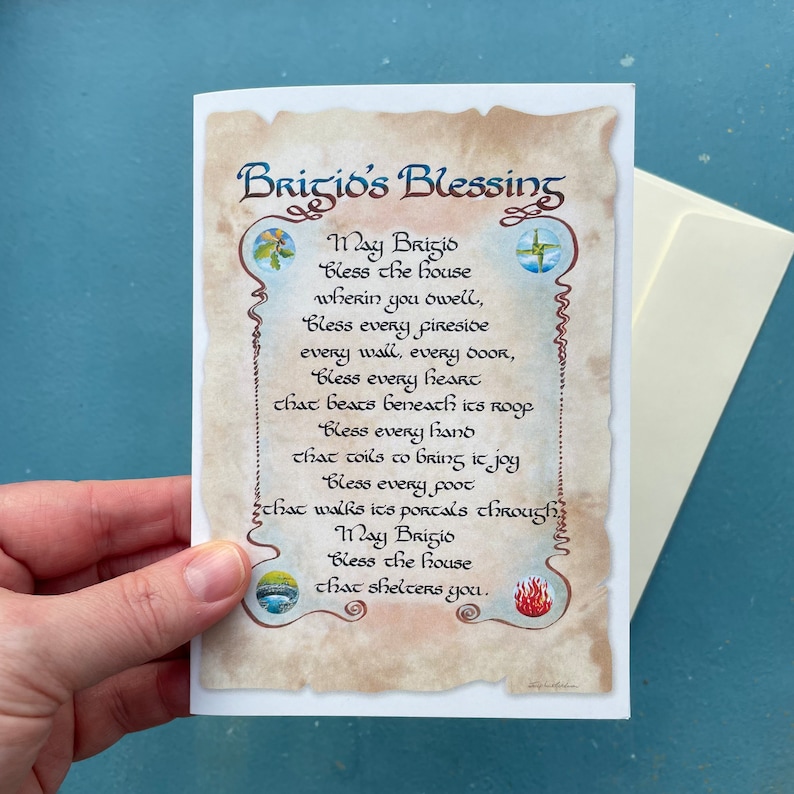 Brigid's Blessing
May Brigid
bless the house
wherin you dwell,
bless every fireside
every wall, every door,
bless every heart
that beats beneath its roof
bless every hand
that toils to bring it joy
bless every foot
that walks its portals through.
May Brigid
bless the house
that shelters you.